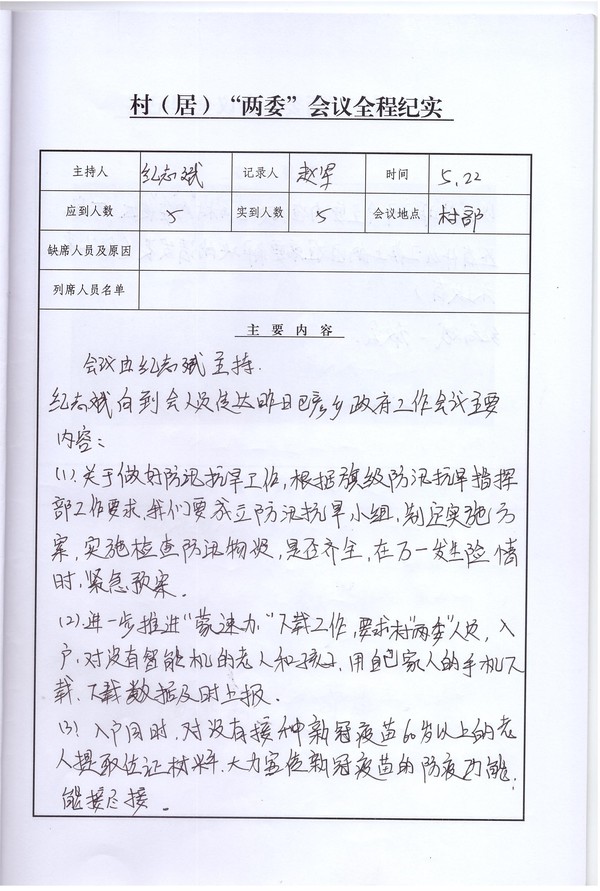 村（居）“两委”会议全程纪实
主持人 纪志斌 记录人 赵军 时间 5.22
应到人数 5 实到人数 5 会议地点 村部
缺席人员及原因
列席人员名单
主 要 内 容
会议由纪志斌主持.
纪志斌向到会人员传达昨日巴彦乡政府工作会议主要
内容:
(1).关于做好防汛抗旱工作,根据旗级防汛抗旱指挥
部工作要求,我们要成立防汛抗旱小组,制定实施方
案,实施检查防汛物资,是否齐全,在万一发生险情
时,紧急预案.
(2).进一步推进“蒙速办”下载工作,要求村“两委”人员,入
户,对没有智能机的老人和孩子,用自己家人的手机下
载.下载数据及时上报.
(3).入户同时,对没有接种新冠疫苗60岁以上的老
人提取佐证材料.大力宣传新冠疫苗的防疫功能,
能接尽接。